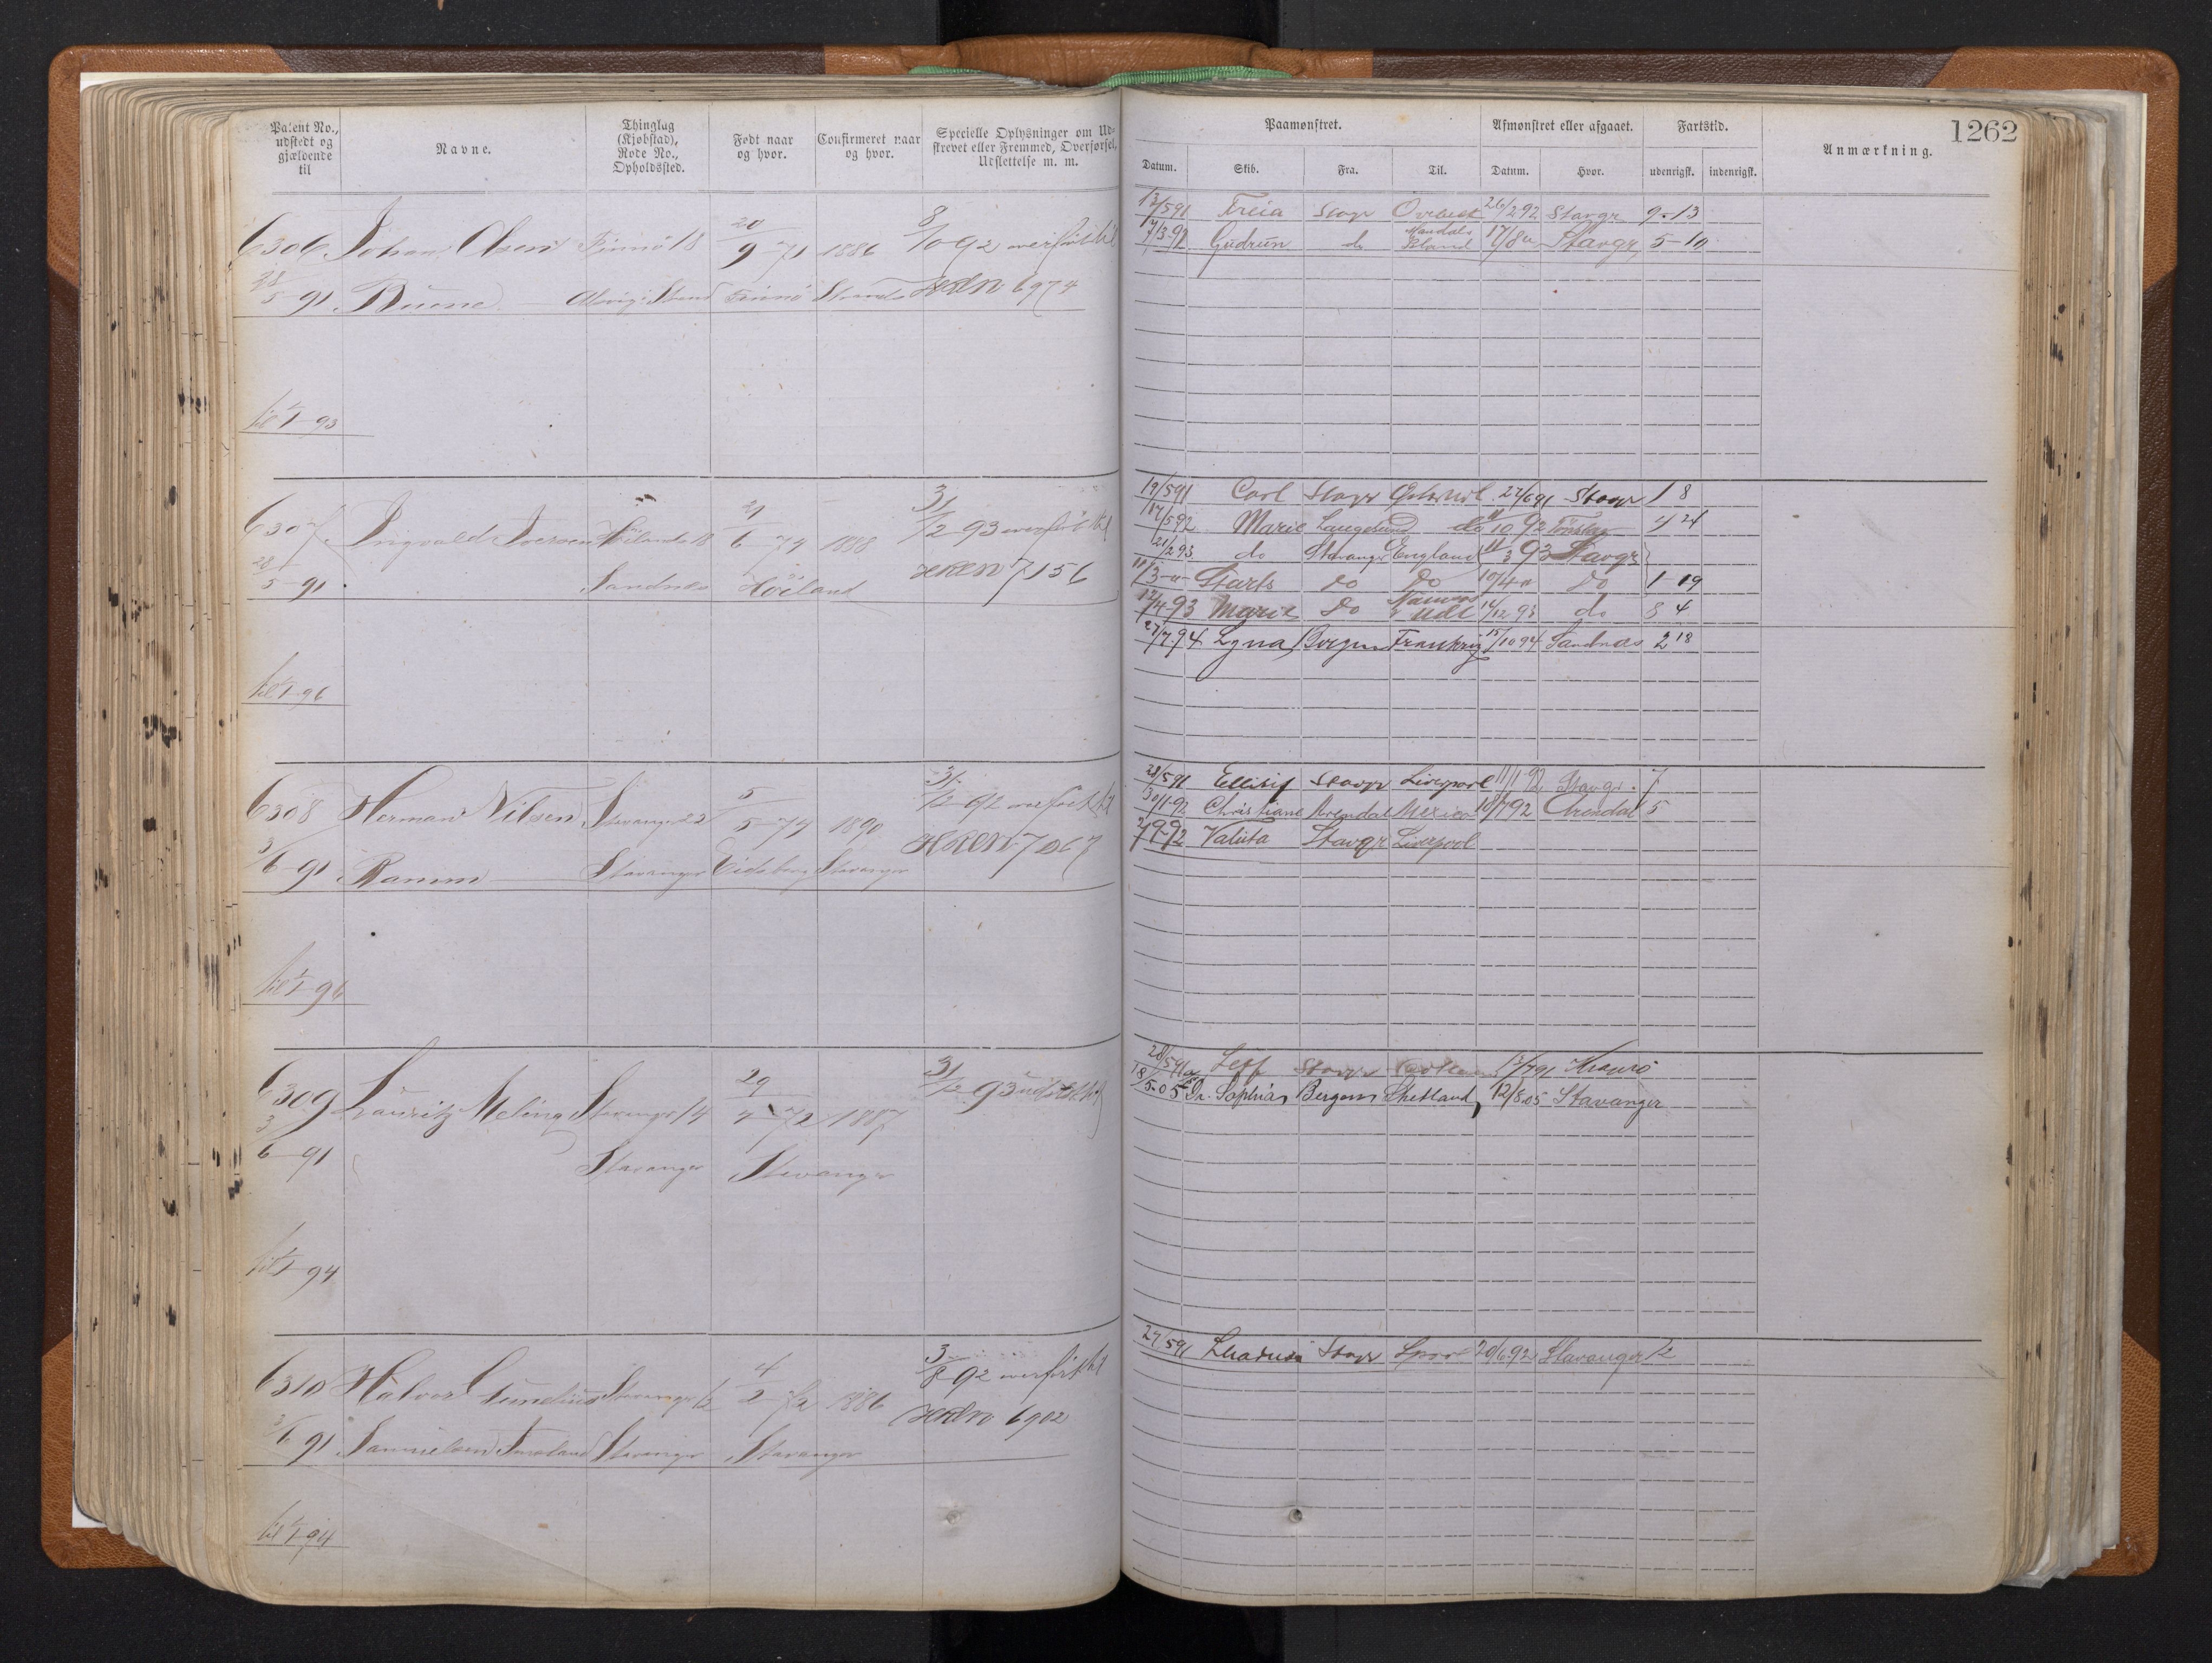 Patent No., udstedt og gjældende til
Navne.
Thinglag (Kjøbstad), Rode No., Opholdssted.
Født naar og hvor.
Confirmeret naar og hvor.
Specielle Oplysninger om Udskrevet eller Fremmed, Overførsel, Udslettelse m. m.
6306 Johan Olsen Finnö 18 20/9 71 1886 8/10 92 overført til
28/5 91 Finnö 6974
til 1/1 93
6307 Ingvald Iversen Höilands 18 29/6 74 1888 3/12 93 overført til
28/5 91 Sandnes Höiland 7156
til 1/1 96
6308 Herman Nilsen Stavanger 22 5/5 74 1890 3/12 92 overført til
3/6 91 Ramm Stavanger Eidsberg Stavanger 7067
til 1/1 96
6309 Lauritz Meling Stavanger 14 29/4 72 1887 3/12 93 udslettet
3/6 91 Stavanger Stavanger
til 1/1 94
6310 Halvor Stavanger 12 4/2 72 1886 3/8 92 overført til
3/6 91 Samuelsen Stavanger Stavanger 6902
til 1/1 94
1262
Paamønstret.
Afmønstret eller afgaaet.
Fartstid.
Anmærkning.
Datum. Skib. Fra. Til. Datum. Hvor. udenrigsk. indenrigsk.
12/5 91 Freia Stavgr 26/2 92 Stavgr 9-13
17/3 92 Gudrun do Island 17/8 Stavgr 5-10
19/5 91 Carl Stavgr 27/6 91 Stavgr 1 8
17/5 92 Marie Langesund do 10 92 4 24
21/2 93 do Stavanger England 11/3 93 Stavgr
11/3 Starts do do 10/4 do 1-19
12/4 93 Marie do 14/12 93 do 8 4
27/7 94 Lyna Bergen Frankrig 15/10 94 Sandnæs 2 18
28/5 91 Ellisif Stavgr Liverpool 11/1 92 Stavgr. 7
30/1 92 Christiane Arendal Mexico 10/7 92 Arendal 5
2/9 92 Valuta Stavgr Liverpool
28/5 91 Leif Stavgr 13/7 91
18/5 05 Dr. Sophia Bergen Shetland 12/8 05 Stavanger
27/5 91 Stavgr 20/6 92 Stavanger 12